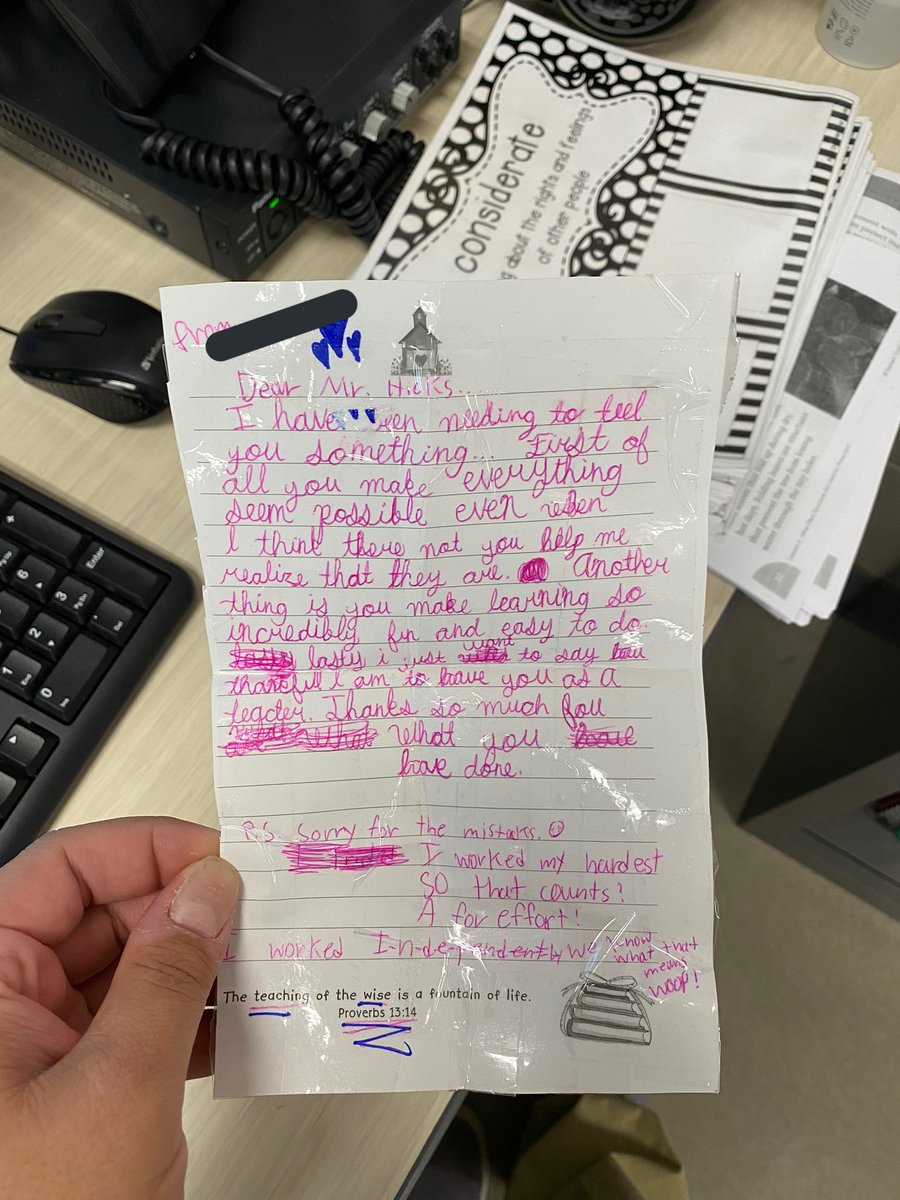 considerate
about the rights and feelings
of other people
from
Dear Mr. Hicks...
I have been needing to teel
you something... First of
all you make everything
seem possible even when
I think there not you help me
realize that they are. Another
thing is you make learning so
incredibly fun and easy to do
lasty i just want to say how
thankful I am to have you as a
tegcter. Thanks so much fou
What you
have done.
P.S. Sorry for the mistaks.
I worked my hardest
SO that counts?
A for effort!
I worked I-n-de-pendently we know that
what
means
woop!
The teaching of the wise is a fountain of life.
Proverbs 13:14
Enter
6
3
PgDn
2
1
0
Ins
Del